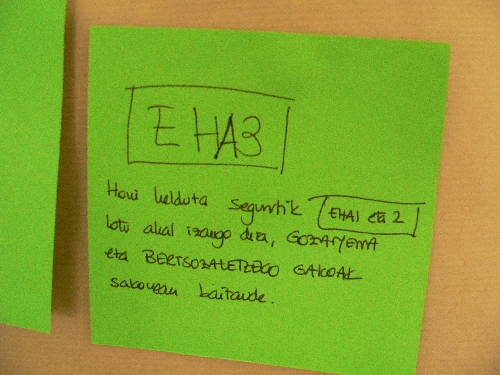 EHA3
Honi helduta segurutik EHA1 eta 2
lotu ahal izango dira, GOZAMENA
eta BERTSOZALETZEGO GAKOAK
sakonean baitaude.